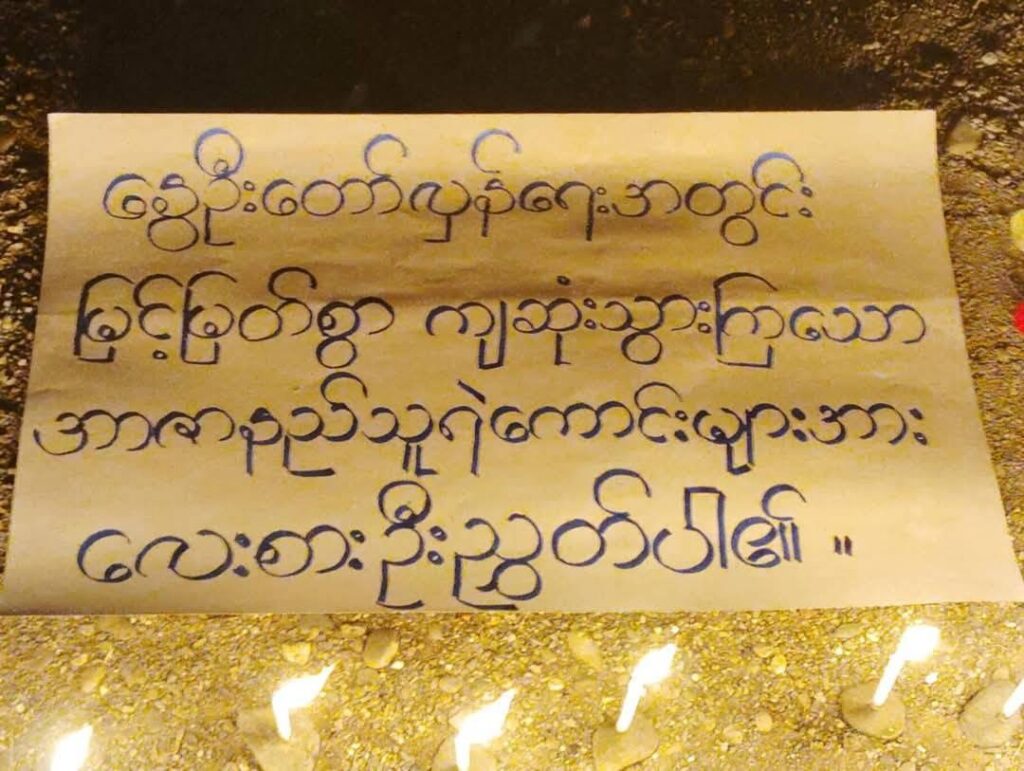 နွေဦးတော်လှန်ရေးအတွင်း
မြင့်မြတ်စွာ ကျဆုံးသွားကြသော
အာဇာနည်သူရဲကောင်းများအား
လေးစားဦးညွှတ်ပါ၏ ။